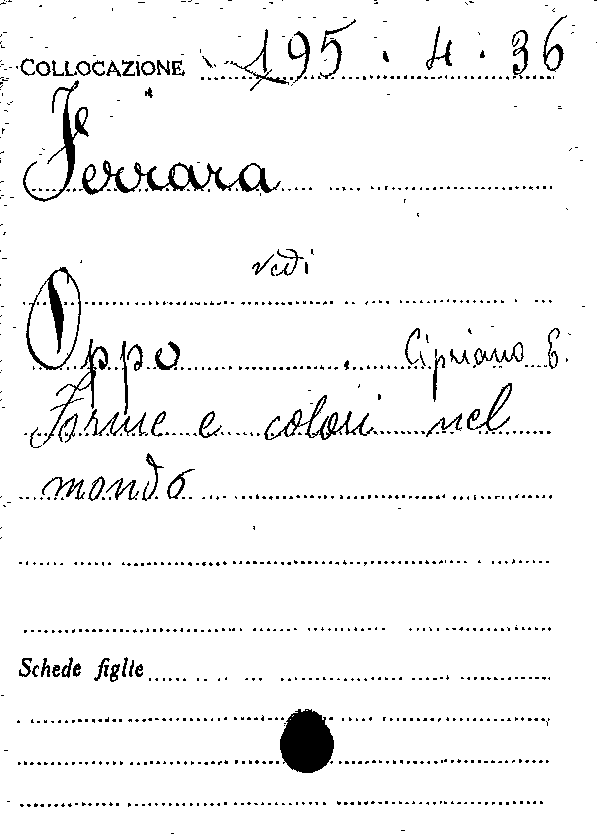 COLLOCAZIONE 195.4.36
Ferrara
vedi
Oppo Cipriano E.
Forme e colori nel
mondo
Schede figlie